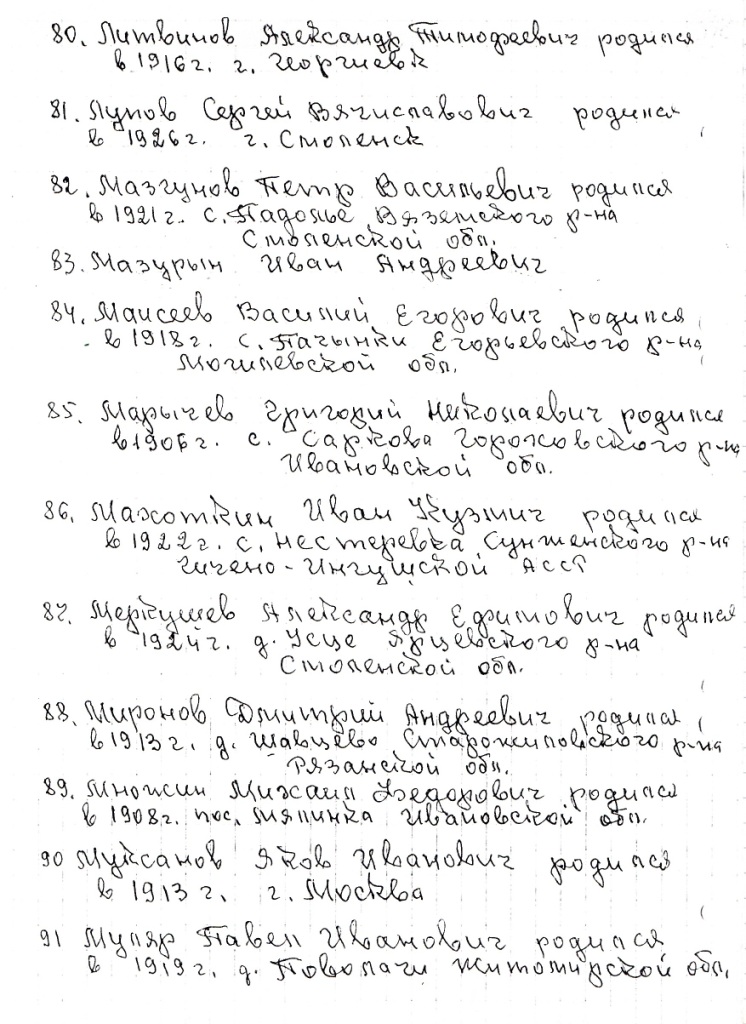 80. Литвинов Александр Тимофеевич родился
в 1916 г. г. Георгиевк
81. Лупов Сергей Вячиславович родился
в 1926 г. г. Смоленск
82. Мазгунов Петр Васильевич родился
в 1921 г. с. Падолье Вяземского р-на
Смоленской обл.
83. Мазурын Иван Андреевич
84. Маисеев Василий Егорович родился
в 1918 г. с. Пачынки Егорьевского р-на
Могилевской обл.
85. Марычев Григорий Николаевич родился
в 1906 г. с. Саркова Горожовского р-на
Ивановской обл.
86. Махоткин Иван Кузмич родился
в 1922 г. с. Нестеревка Сунженского р-на
Чичено-Ингушской АССТ
87. Меркушев Александр Ефимович родился
в 1924 г. д. Усце Ярцевского р-на
Смоленской обл.
88. Миронов Дмитрий Андреевич родился
в 1913 г. д. Шавцево Старожиловского р-на
Рязанской обл.
89. Множин Михаил Федорович родился
в 1908 г. пос. Мяпинка Ивановской обл.
90 Муксанов Яков Иванович родился
в 1913 г. г. Москва
91 Муляр Павел Иванович родился
в 1919 г. д. Поволачи Житомирской обл.